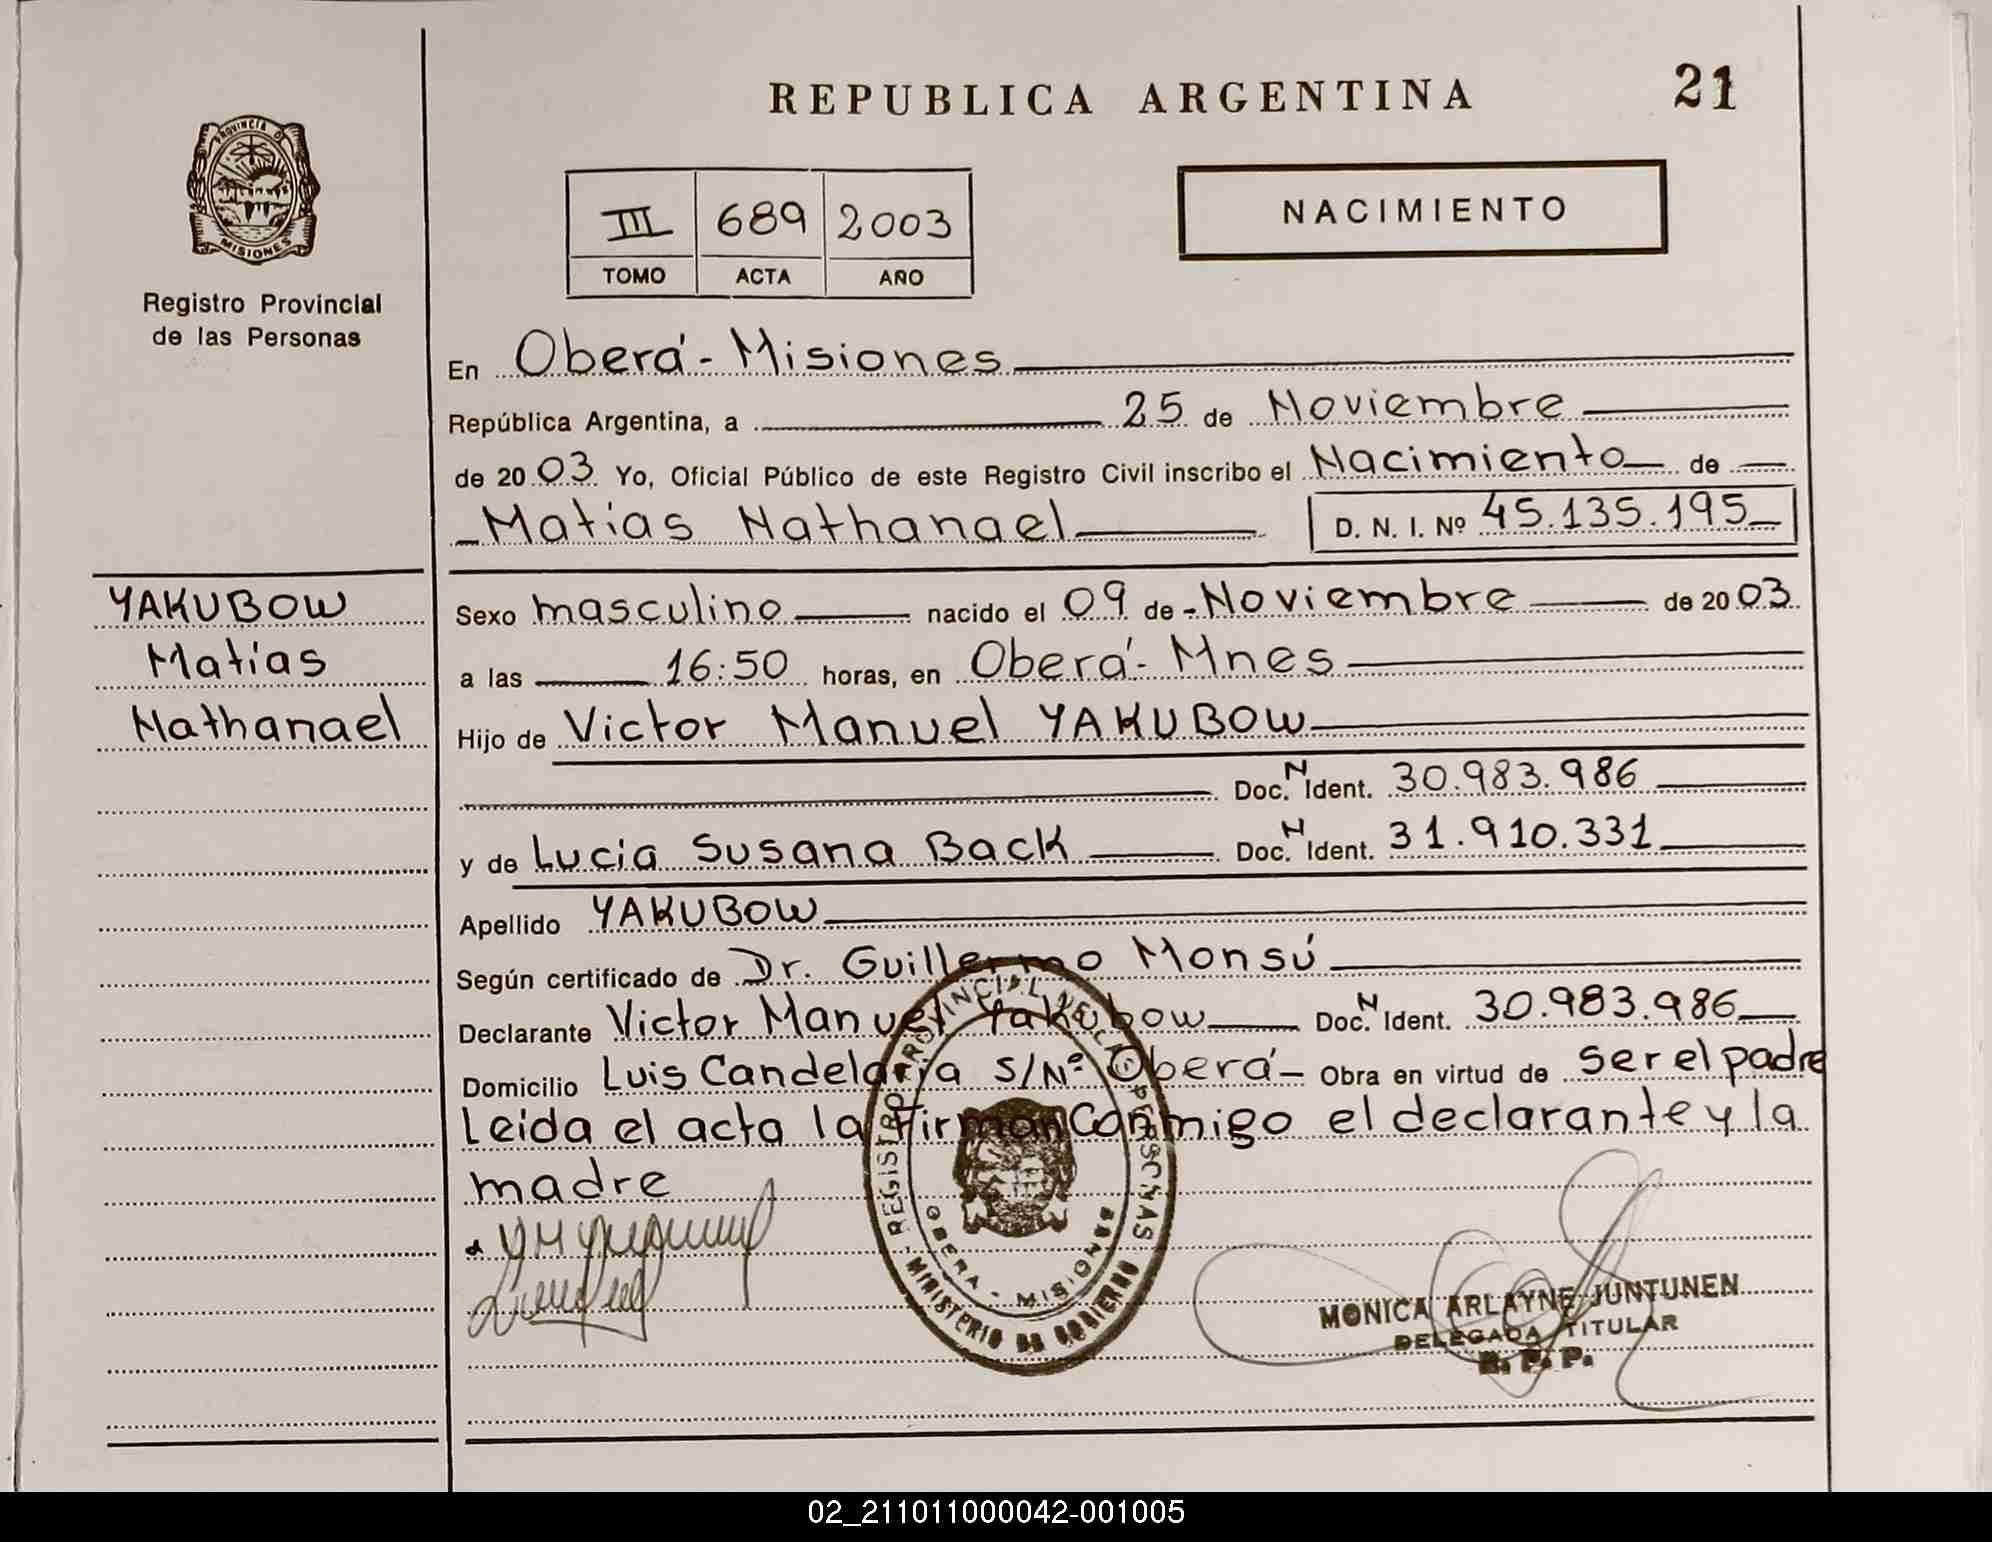 REPUBLICA ARGENTINA 21
PROVINCIA DE
MISIONES
Registro Provincial
de las Personas
III 689 2003
TOMO ACTA AÑO
NACIMIENTO
En Oberá - Misiones
República Argentina, a 25 de Noviembre
de 2003 Yo, Oficial Público de este Registro Civil inscribo el Nacimiento de
Matias Nathanael D. N. I. Nº 45.135.195
YAKUBOW
Matías
Nathanael
Sexo masculino nacido el 09 de - Noviembre de 2003
a las 16:50 horas, en Oberá - Mnes
Hijo de Victor Manuel YAKUBOW
Doc. N Ident. 30.983.986
y de Lucia Susana Back Doc. N Ident. 31.910.331
Apellido YAKUBOW
Según certificado de Dr. Guillermo Monsú
Declarante Victor Manuel Yakubow Doc. N Ident. 30.983.986
Domicilio Luis Candelaria S/Nº Oberá - Obra en virtud de ser el padre
Leida el acta la Firman Conmigo el declarante y la
madre
REGISTRO PROVINCIAL DE LAS PERSONAS
OBERA - MISIONES
MINISTERIO DE GOBIERNO
MONICA ARLAYNE JUNTUNEN
DELEGADA TITULAR
R. P. P.
02_211011000042-001005